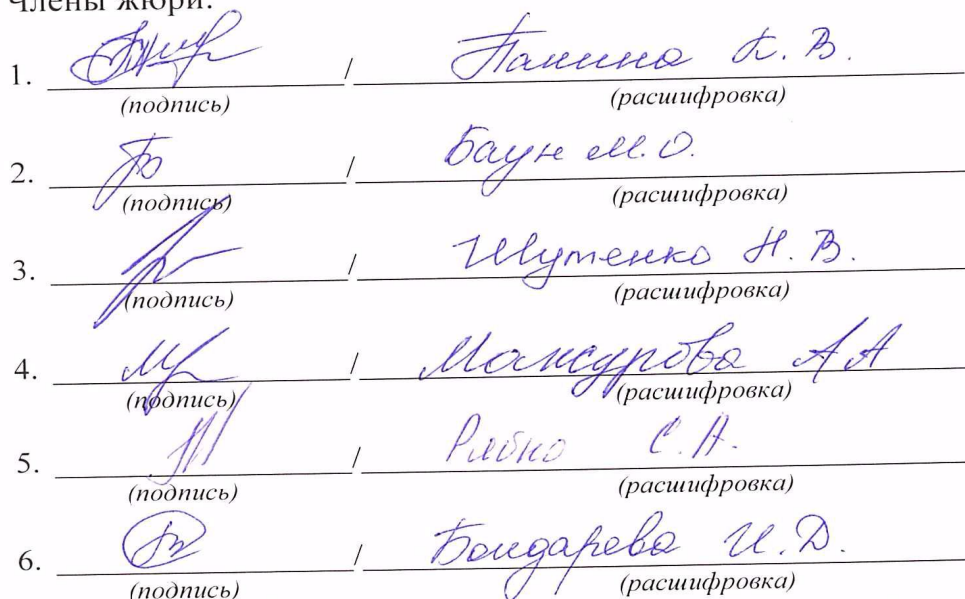 Члены жюри:
1. / Панина К. В.
(подпись) (расшифровка)
2. / Баун М.О.
(подпись) (расшифровка)
3. / Шутенко Н. В.
(подпись) (расшифровка)
4. / Мансурова А А
(подпись) (расшифровка)
5. / Рябко С. А.
(подпись) (расшифровка)
6. / Бондарева И. Д.
(подпись) (расшифровка)